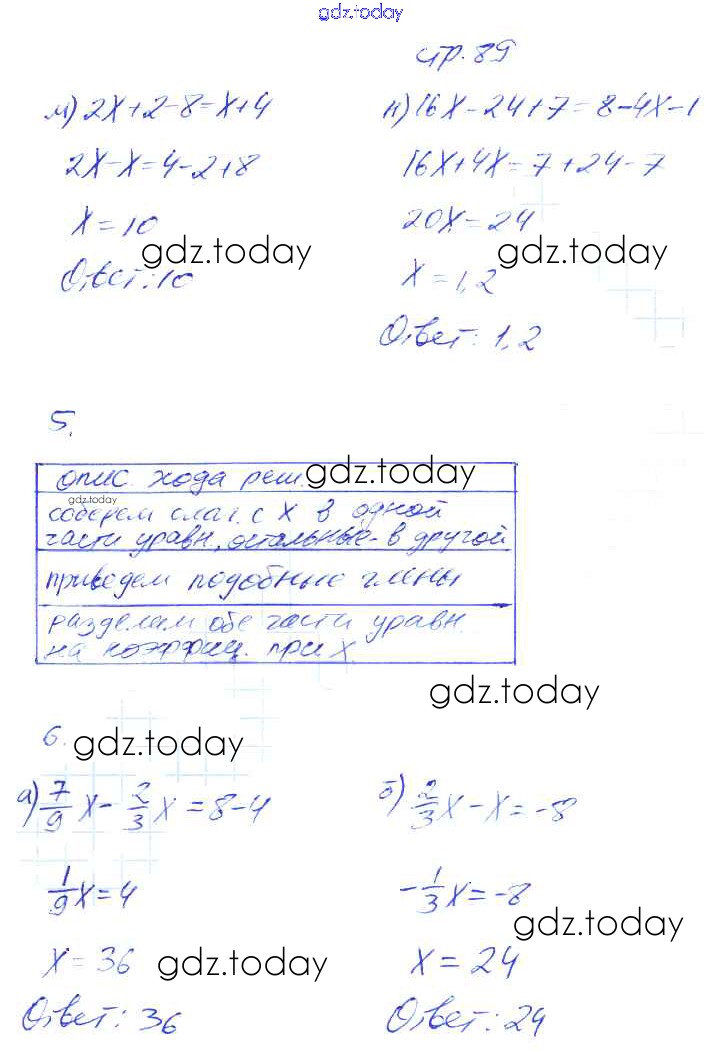 gdz.today
стр. 89
м) 2x+2-8=x+4
2x-x=4-2+8
x=10
gdz.today
Ответ: 10
н) 16x-24+7=8-4x-1
16x+4x=7+24-7
20x=24
gdz.today
x=1,2
Ответ: 1,2
5.
опис. хода реш. gdz.today
gdz.today
соберем слаг. с x в одной
части уравн., остальные - в другой
приведем подобные члены
разделим обе части уравн.
на коэффиц. при x
gdz.today
6. gdz.today
а) 7/9 x - 2/3 x = 8-4
1/9 x = 4
x = 36 gdz.today
Ответ: 36
б) 2/3 x - x = -8
-1/3 x = -8
gdz.today
x = 24
Ответ: 24